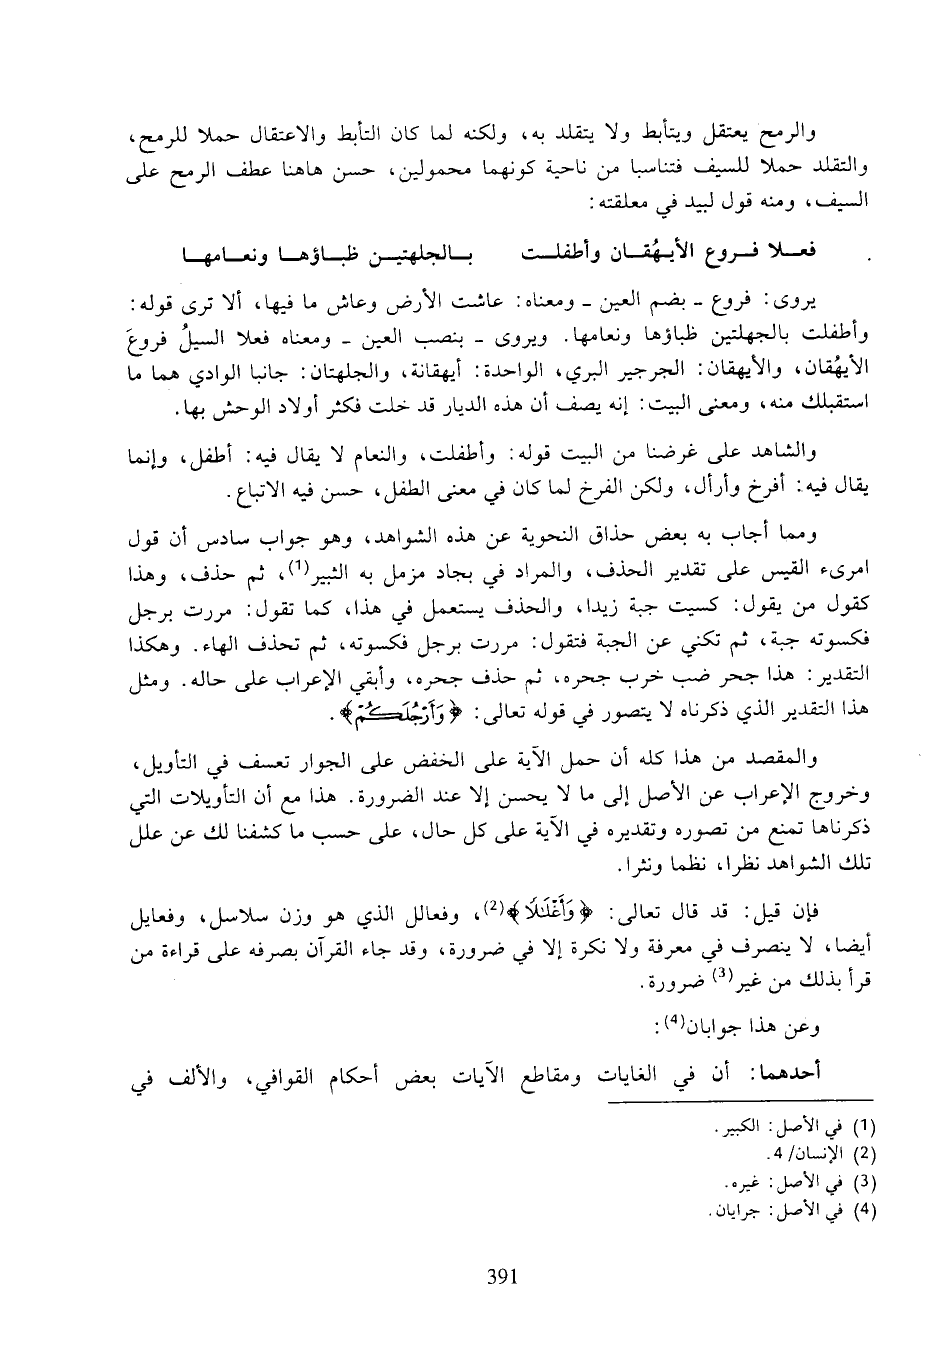 والرمح يعتقل ويتأبط ولا يتقلد به، ولكنه لما كان التأبط والاعتقال حملا للرمح،
والتقلد حملا للسيف فتناسبا من ناحية كونهما محمولين، حسن هاهنا عطف الرمح على
السيف، ومنه قول لبيد في معلقته:
فعـلا فـروع الأيـهُقـان وأطفلـت بـالجلهتيـن ظبـاؤهـا ونعـامهـا
يروى: فروع ـ بضم العين ـ ومعناه: عاشت الأرض وعاش ما فيها، ألا ترى قوله:
وأطفلت بالجهلتين ظباؤها ونعامها. ويروى ـ بنصب العين ـ ومعناه فعلا السيلُ فروعَ
الأيهُقان، والأيهقان: الجرجير البري، الواحدة: أيهقانة، والجلهتان: جانبا الوادي هما ما
استقبلك منه، ومعنى البيت: إنه يصف أن هذه الديار قد خلت فكثر أولاد الوحش بها.
والشاهد على غرضنا من البيت قوله: وأطفلت، والنعام لا يقال فيه: أطفل، وإنما
يقال فيه: أفرخ وأرأل، ولكن الفرخ لما كان في معنى الطفل، حسن فيه الاتباع.
ومما أجاب به بعض حذاق النحوية عن هذه الشواهد، وهو جواب سادس أن قول
امرىء القيس على تقدير الحذف، والمراد في بجاد مزمل به الثبير(1)، ثم حذف، وهذا
كقول من يقول: كسيت جبة زيدا، والحذف يستعمل في هذا، كما تقول: مررت برجل
فكسوته جبة، ثم تكني عن الجبة فتقول: مررت برجل فكسوته، ثم تحذف الهاء. وهكذا
التقدير: هذا جحر ضب خرب جحره، ثم حذف جحره، وأبقي الإعراب على حاله. ومثل
هذا التقدير الذي ذكرناه لا يتصور في قوله تعالى: ﴿وَأَرْجُلَكُمْ﴾.
والمقصد من هذا كله أن حمل الآية على الخفض على الجوار تعسف في التأويل،
وخروج الإعراب عن الأصل إلى ما لا يحسن إلا عند الضرورة. هذا مع أن التأويلات التي
ذكرناها تمنع من تصوره وتقديره في الآية على كل حال، على حسب ما كشفنا لك عن علل
تلك الشواهد نظرا، نظما ونثرا.
فإن قيل: قد قال تعالى: ﴿وَأَغْلَٰلًا﴾(2)، وفعالل الذي هو وزن سلاسل، وفعايل
أيضا، لا ينصرف في معرفة ولا نكرة إلا في ضرورة، وقد جاء القرآن بصرفه على قراءة من
قرأ بذلك من غير(3) ضرورة.
وعن هذا جوابان(4):
أحدهما: أن في الغايات ومقاطع الآيات بعض أحكام القوافي، والألف في
(1) في الأصل: الكبير.
(2) الإنسان/ 4.
(3) في الأصل: غيره.
(4) في الأصل: جرايان.
391